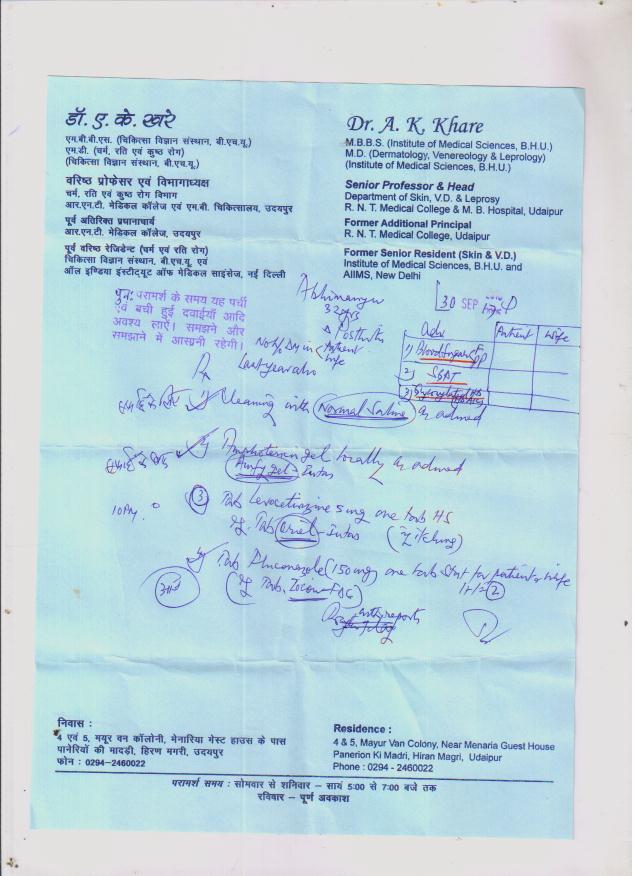 डॉ. ए. के. खरे
एम.बी.बी.एस. (चिकित्सा विज्ञान संस्थान, बी.एच.यू.)
एम.डी. (चर्म, रति एवं कुष्ठ रोग)
(चिकित्सा विज्ञान संस्थान, बी.एच.यू.)
वरिष्ठ प्रोफेसर एवं विभागाध्यक्ष
चर्म, रति एवं कुष्ठ रोग विभाग
आर.एन.टी. मेडिकल कॉलेज एवं एम.बी. चिकित्सालय, उदयपुर
पूर्व अतिरिक्त प्रधानाचार्य
आर.एन.टी. मेडिकल कॉलेज, उदयपुर
पूर्व वरिष्ठ रेजिडेन्ट (चर्म एवं रति रोग)
चिकित्सा विज्ञान संस्थान, बी.एच.यू. एवं
ऑल इण्डिया इंस्टीट्यूट ऑफ मेडिकल साइंसेज, नई दिल्ली
Dr. A. K. Khare
M.B.B.S. (Institute of Medical Sciences, B.H.U.)
M.D. (Dermatology, Venereology & Leprology)
(Institute of Medical Sciences, B.H.U.)
Senior Professor & Head
Department of Skin, V.D. & Leprosy
R. N. T. Medical College & M. B. Hospital, Udaipur
Former Additional Principal
R. N. T. Medical College, Udaipur
Former Senior Resident (Skin & V.D.)
Institute of Medical Sciences, B.H.U. and
AIIMS, New Delhi
पुनः परामर्श के समय यह पर्ची
एवं बची हुई दवाईयाँ आदि
अवश्य लाएँ। समझने और
समझाने में आसानी रहेगी।
Abhimanyu
32yrs
30 SEP
Δ Posthitis
No H/o DM in < Patient
wife
Last year also
Adv
Patient Wife
1) Blood Sugar F PP
2) SGPT
3)
Rx
1) Cleaning with Normal Saline as advised
2) Amphotericin gel locally as advised
Amfy gel - Intas
10PM.
3) Tab Levocetirizine 5mg one tab HS
eg. Tab - Intas (Itching)
4) Tab Fluconazole (150mg) one tab Stat for patient & wife
1+1=2
(eg Tab. Zocon - FDC)
with reports
निवास :
4 एवं 5, मयूर वन कॉलोनी, मेनारिया गेस्ट हाउस के पास
पानेरियों की मादड़ी, हिरण मगरी, उदयपुर
फोन : 0294-2460022
Residence :
4 & 5, Mayur Van Colony, Near Menaria Guest House
Panerion Ki Madri, Hiran Magri, Udaipur
Phone : 0294 - 2460022
परामर्श समय : सोमवार से शनिवार – सायं 5:00 से 7:00 बजे तक
रविवार – पूर्ण अवकाश